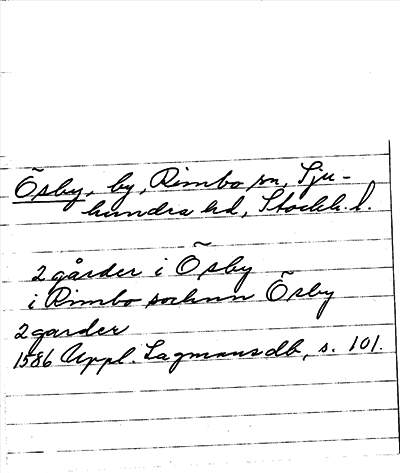 Ösby, by, Rimbo sn, Sju-
hundra hd, Stockh. l.
2 gårder i Ösby
i Rimbo sochnn Ösby
2 garder
1586 Uppl. Lagmansdb, s. 101.